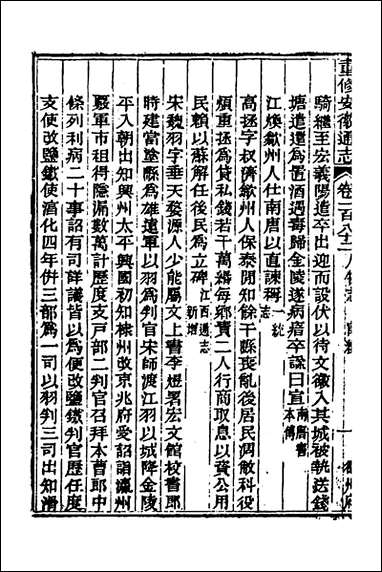 騎繼至宏義陽遣卒出迎而設伏以待文徽入其城被執送錢
塘遣還爲置酒遇毒歸金陵遂病瘖卒諡曰宣南唐書本傳
江煥歙州人仕南唐以直諫稱一統志
高拯字叔濟歙州人保泰閒知餘干縣喪亂後居民凋敝科役
煩重拯爲貸私錢若干萬緡每鄉賫二人行商取息以資公用
民賴以蘇解任後民爲立碑江西通志新增
宋魏羽字垂天婺源人少能屬文上書李煜署宏文館校書郎
時建當塗縣爲雄遠軍以羽爲判官宋師渡江羽以城降金陵
平入朝出知興州太平興國初知棣州改京兆府受詔詣瀛州
覈軍市租得隱漏數萬計歷度支戶部二判官召拜本曹郎中
條列利病二十事詔有司詳議皆以爲便改鹽鐵判官歷任度
支使改鹽鐵使淳化四年併三部爲一司以羽判三司出知滑
重修安徽通志 卷一百八十二 人物志 一